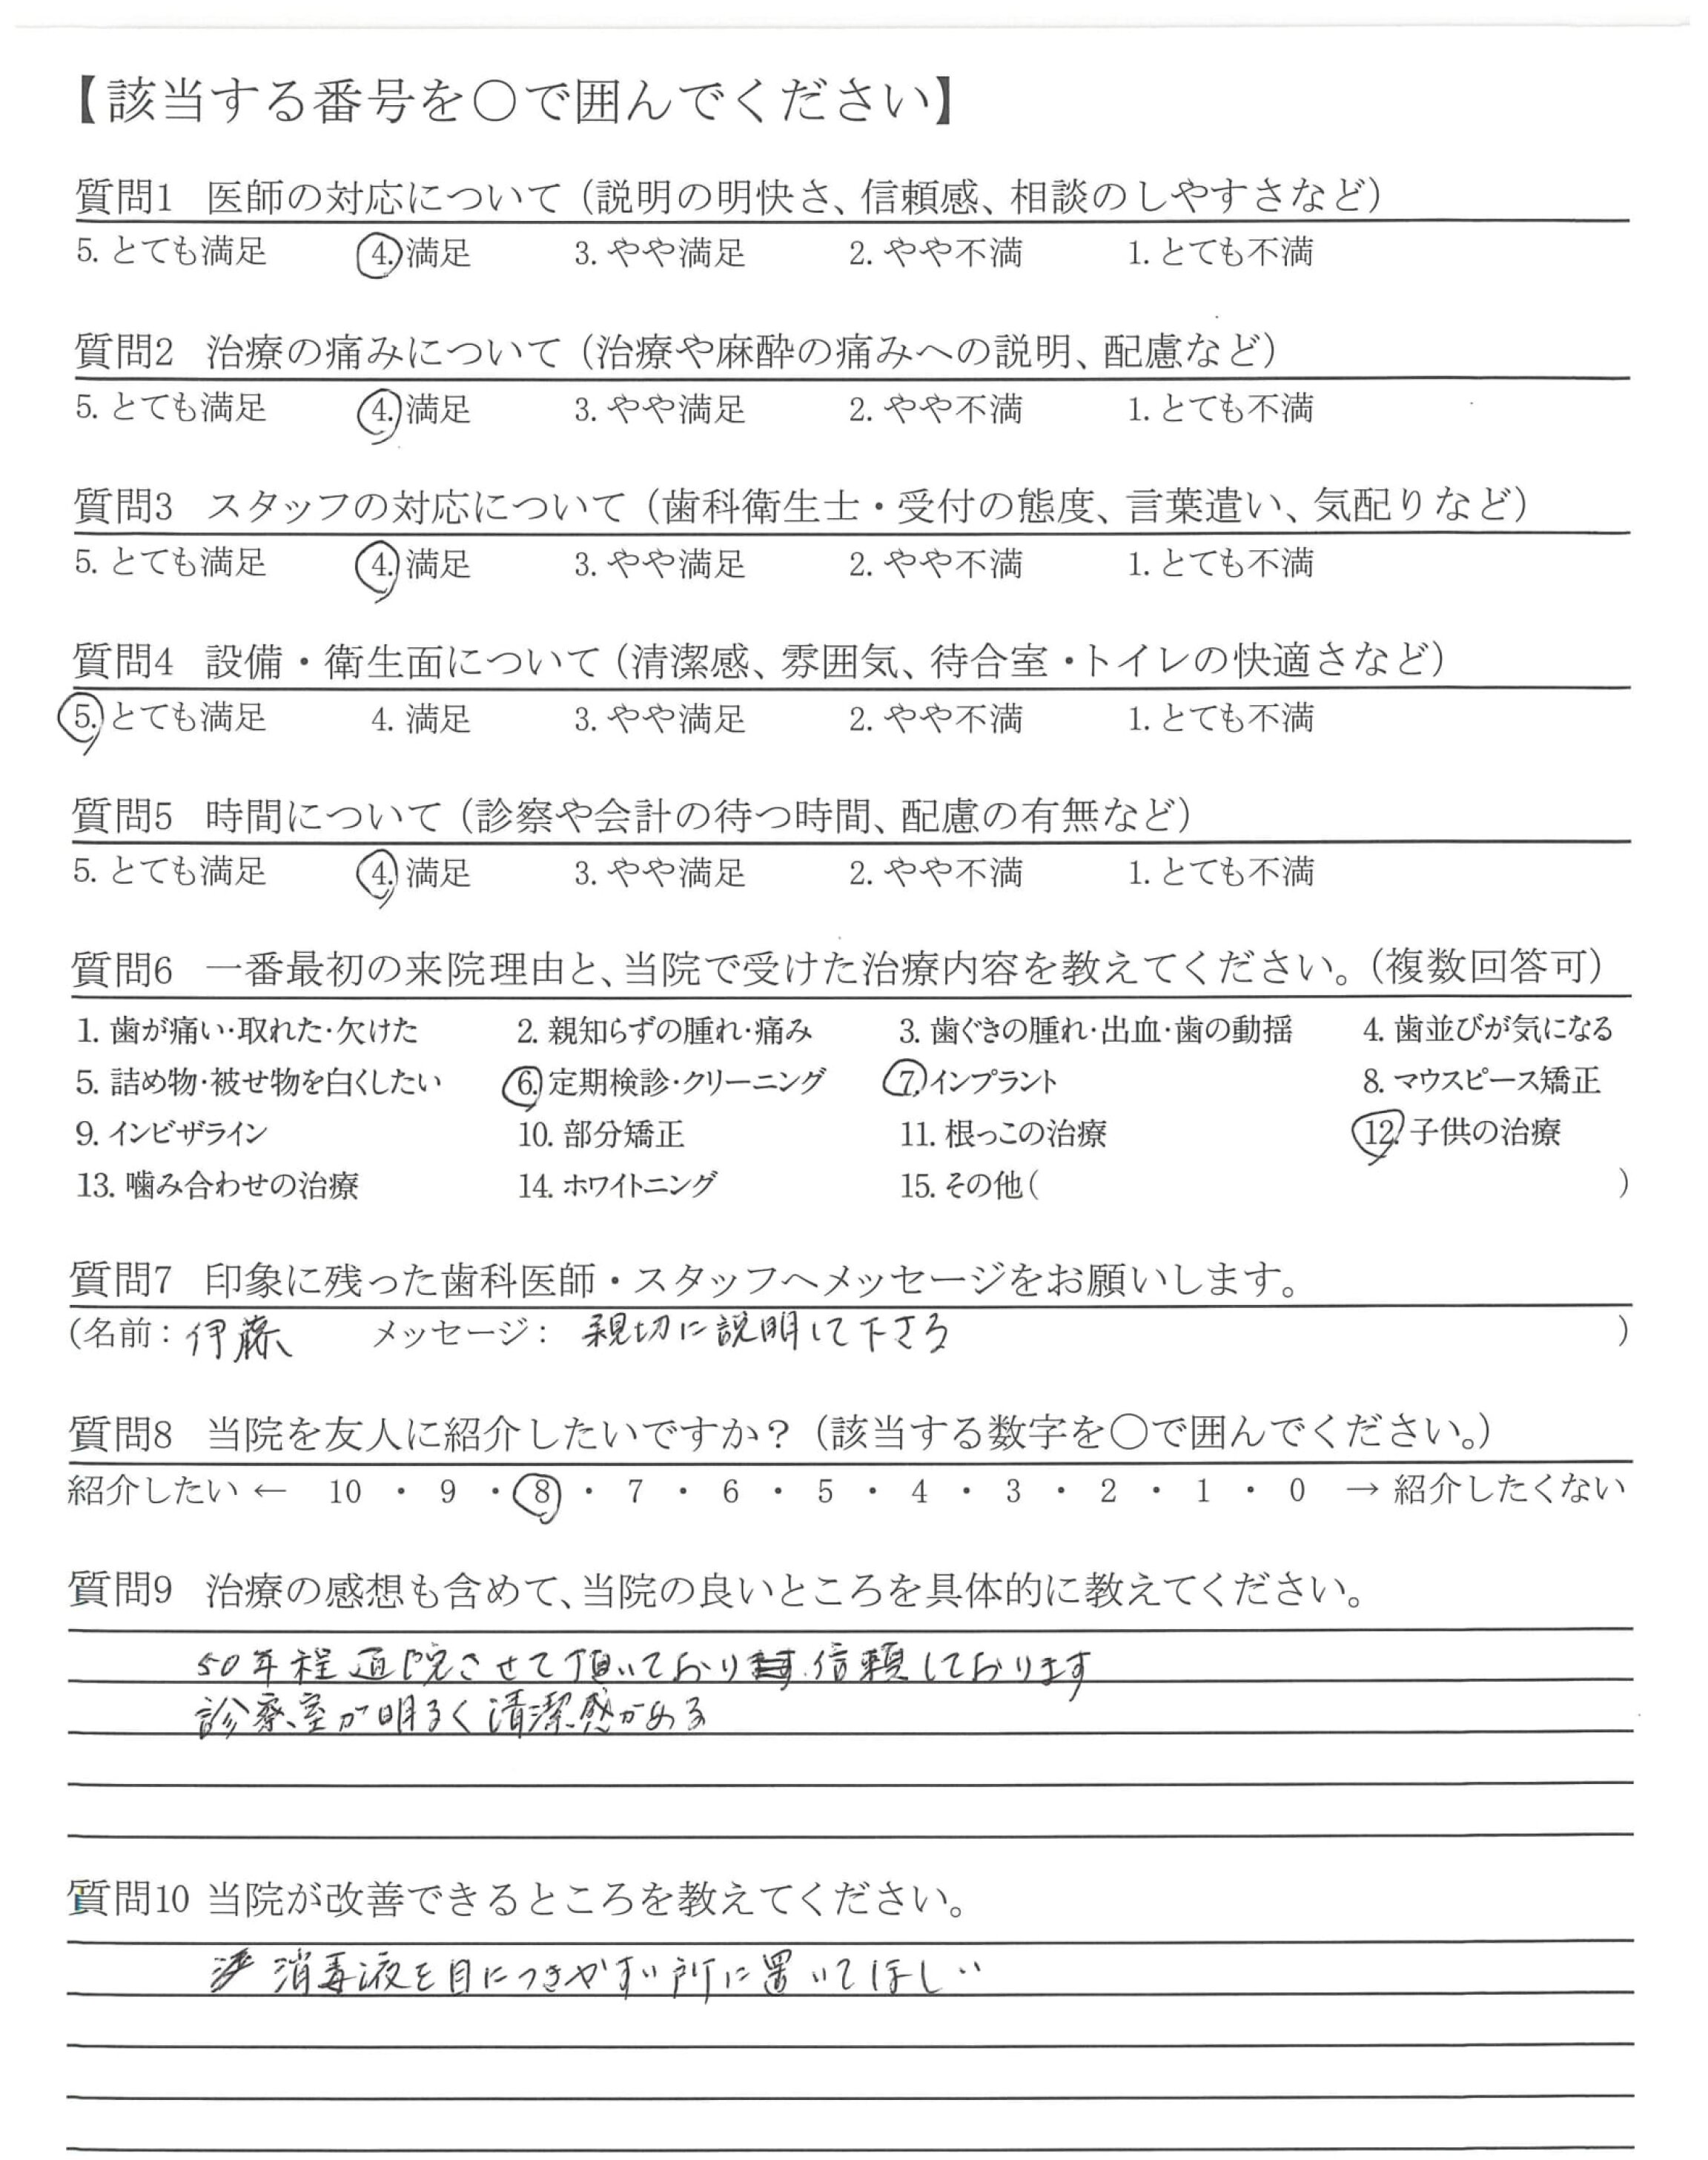 【該当する番号を〇で囲んでください】
質問1 医師の対応について（説明の明快さ、信頼感、相談のしやすさなど）
5. とても満足 4. 満足 3. やや満足 2. やや不満 1. とても不満
質問2 治療の痛みについて（治療や麻酔の痛みへの説明、配慮など）
5. とても満足 4. 満足 3. やや満足 2. やや不満 1. とても不満
質問3 スタッフの対応について（歯科衛生士・受付の態度、言葉遣い、気配りなど）
5. とても満足 4. 満足 3. やや満足 2. やや不満 1. とても不満
質問4 設備・衛生面について（清潔感、雰囲気、待合室・トイレの快適さなど）
5. とても満足 4. 満足 3. やや満足 2. やや不満 1. とても不満
質問5 時間について（診察や会計の待つ時間、配慮の有無など）
5. とても満足 4. 満足 3. やや満足 2. やや不満 1. とても不満
質問6 一番最初の来院理由と、当院で受けた治療内容を教えてください。（複数回答可）
1. 歯が痛い・取れた・欠けた 2. 親知らずの腫れ・痛み 3. 歯ぐきの腫れ・出血・歯の動揺 4. 歯並びが気になる
5. 詰め物・被せ物を白くしたい 6. 定期検診・クリーニング 7. インプラント 8. マウスピース矯正
9. インビザライン 10. 部分矯正 11. 根っこの治療 12. 子供の治療
13. 噛み合わせの治療 14. ホワイトニング 15. その他（ ）
質問7 印象に残った歯科医師・スタッフへメッセージをお願いします。
（名前：伊藤 メッセージ：親切に説明して下さる ）
質問8 当院を友人に紹介したいですか？（該当する数字を〇で囲んでください。）
紹介したい ← 10 ・ 9 ・ 8 ・ 7 ・ 6 ・ 5 ・ 4 ・ 3 ・ 2 ・ 1 ・ 0 → 紹介したくない
質問9 治療の感想も含めて、当院の良いところを具体的に教えてください。
50年程通院させて頂いており 信頼しております
診療室が明るく清潔感がある
質問10 当院が改善できるところを教えてください。
消毒液を目につきやすい所に置いてほしい